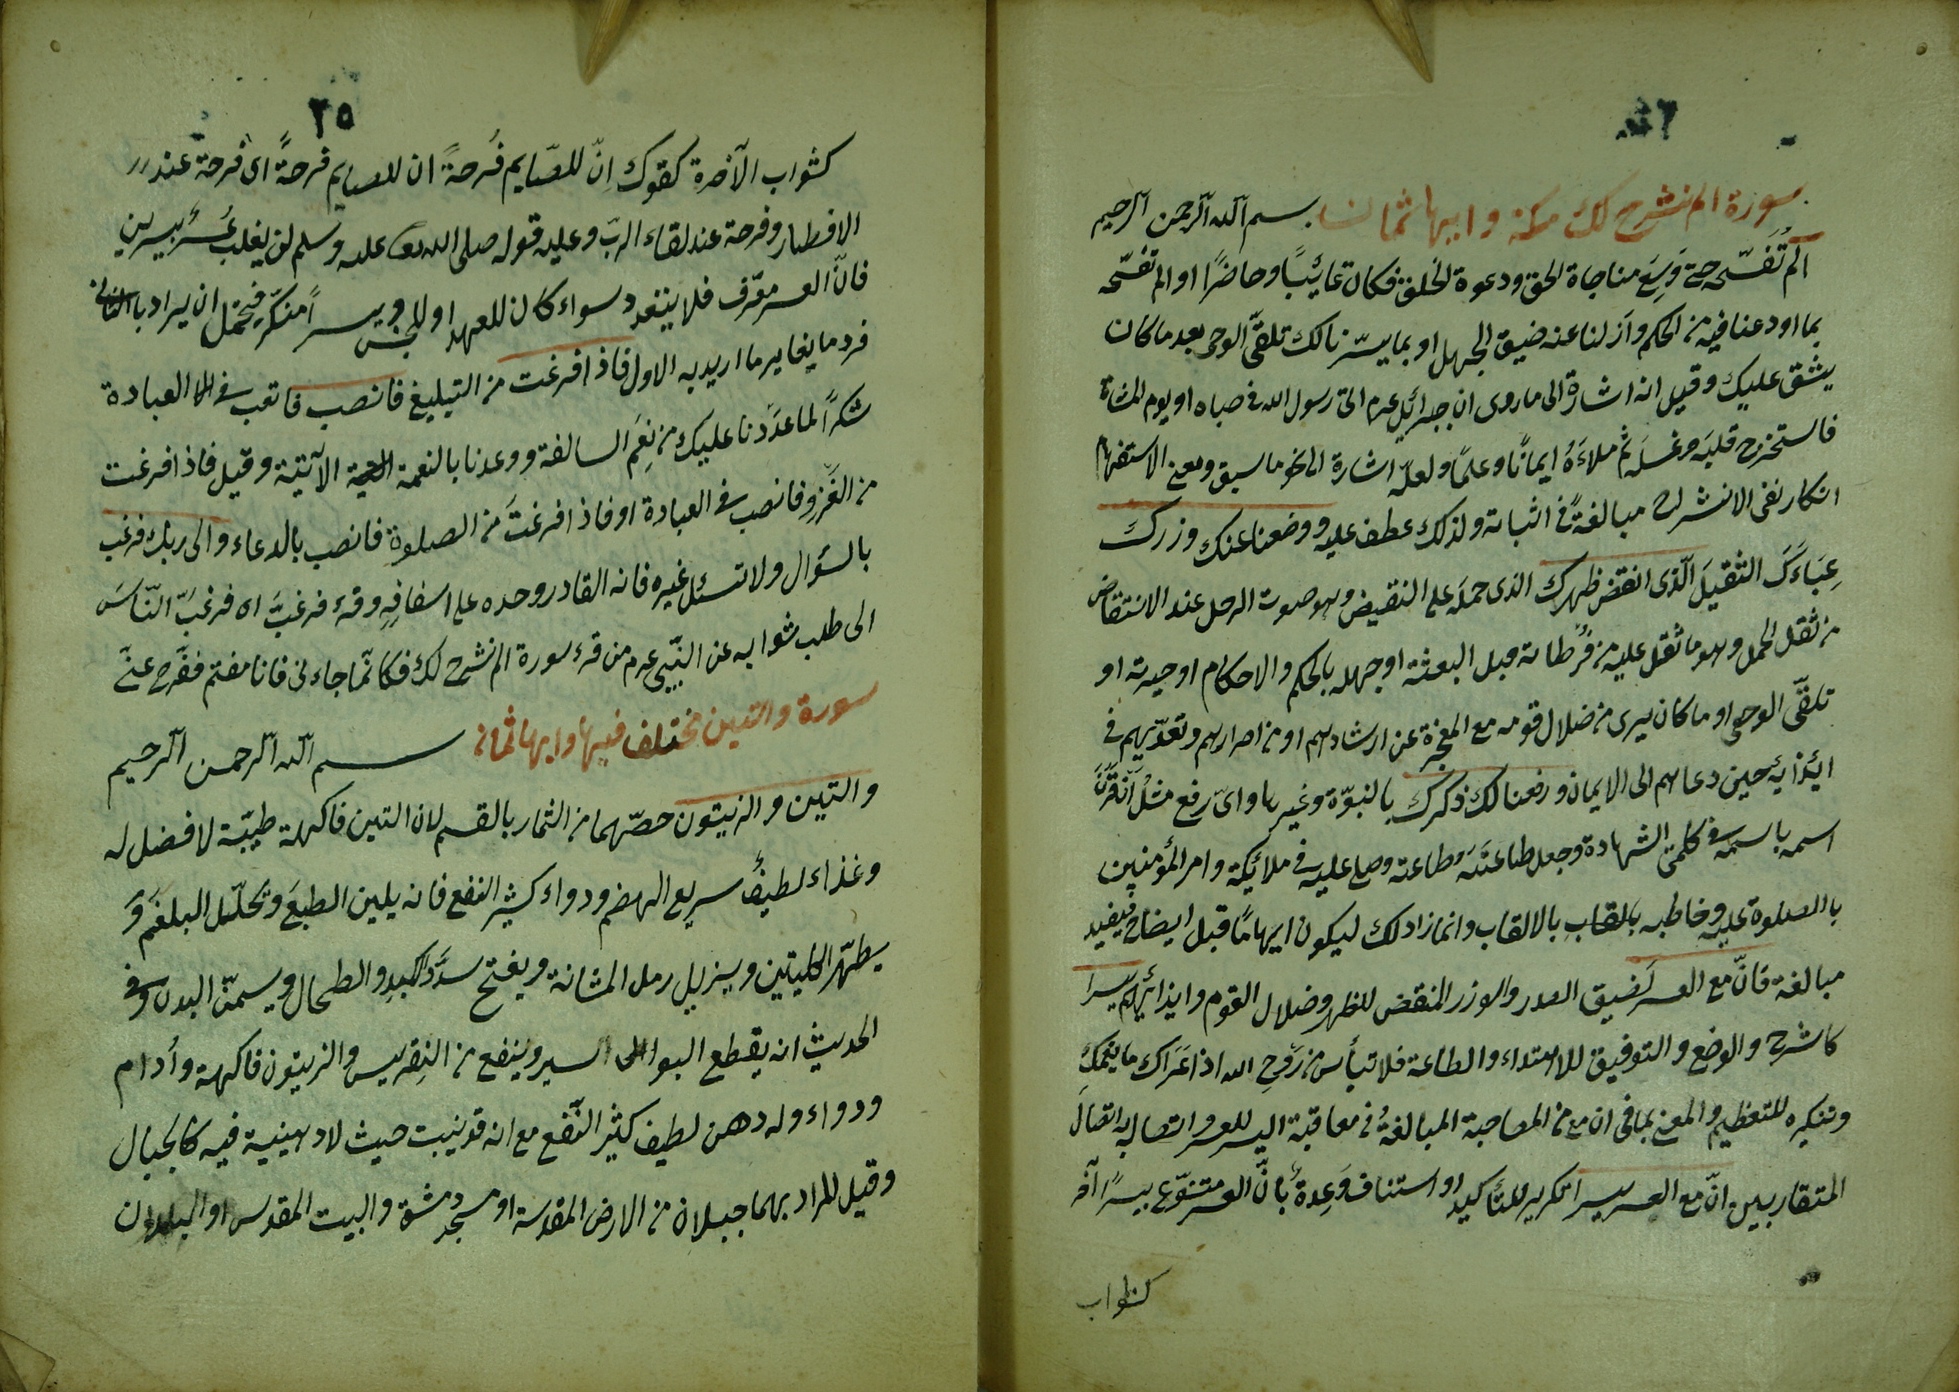 سورة الم نشرح لك مكية وايها ثمان بسم الله الرحمن الرحيم
الم نفسحه حتى وسع مناجاة الحق ودعوة الخلق فكان غائبا وحاضرا او الم نفسحه
بما اودعنا فيه من الحكم وازلنا عنه ضيق الجهل او بما يسرنا لك تلقى الوحى بعد ما كان
يشق عليك وقيل انه اشارة الى ما روى ان جبرائيل عم اتى رسول الله فى صباه او يوم الميثاق
فاستخرج قلبه وغسله ثم ملاءه ايمانا وعلما ولعله اشارة الى نحو ما سبق ومعنى الاستفهام
انكار نفى الانشراح مبالغة فى اثباته ولذلك عطف عليه ووضعنا عنك وزرك
عباءك الثقيل الذى انقض ظهرك الذى حمله على النقيض وهو صوت الرحل عند الانتقاض
من ثقل الحمل وهو ما ثقل عليه من فرطاته قبل البعثة او جهله بالحكم والاحكام او حيرته او
تلقى الوحى او ما كان يرى من ضلال قومه مع العجزة عن ارشادهم او من اصرارهم وتعديهم فى
ايذائه حين دعاهم الى الايمان ورفعنا لك ذكرك بالنبوة وغيرها واى رفع مثل ان قرن
اسمه باسمه فى كلمتى الشهادة وجعل طاعته طاعته وصلى عليه فى ملائكته وامر المؤمنين
بالصلوة عليه وخاطبه بالالقاب وانما زاد لك ليكون ايهاما قبل ايضاح فيفيد
مبالغة فان مع العسر كضيق الصدر والوزر المنقض للظهر وضلال القوم وايذائهم يسرا
كالشرح والوضع والتوفيق للاهتداء والطاعة فلا تيأس من روح الله اذا عراك ما يغمك
وتنكيره للتعظيم والمعنى بما فى ان مع من المصاحبة المبالغة فى معاقبة اليسر للعسر واتصاله به اتصال
المتقاربين ان مع العسر يسرا تكرير للتأكيد او استئناف وعدة بأن العسر متنوع بيسر آخر
كثواب
٢٥
كثواب الآخرة كقوك إن للصايم فرحة ان للصايم فرحة اى فرحة عند
الافطار وفرحة عند لقاء الرب وعليه قوله صلى الله تع عليه وسلم لن يغلب عسر يسرين
فان العسر معرف فلا يتعدد سواء كان للعهد او للجنس ويسرا منكر فيحتمل ان يراد بالثانى
فرد ما يغاير ما اريد به الاول فاذا فرغت من التبليغ فانصب فاتعب فى العبادة
شكرا لما عددنا عليك من نعم السالفة ووعدنا بالنعمة الآتية وقيل فاذا فرغت
من الغزو فانصب فى العبادة او فاذا فرغت من الصلوة فانصب بالدعاء والى ربك فرغب
بالسؤال ولا تسئل غيره فانه القادر وحده على اسعافه وقرء فرغب اى فرغب الناس
الى طلب ثوابه عن النبى عم من قرء سورة الم نشرح لك فكانما جاءنى فانا مغتم ففرج عنى
سورة والتين مختلف فيها وايها ثمان بسم الله الرحمن الرحيم
والتين والزيتون خصهما من الثمار بالقسم لان التين فاكهة طيبة لا فضل له
وغذاء لطيف سريع الهضم ودواء كثير النفع فانه يلين الطبع وتحلل البلغم و
يطهر الكليتين ويزيل رمل المثانة ويفتح سدد الكبد والطحال ويسمن البدن وفى
الحديث انه يقطع البواسير وينفع من النقريس والزيتون فاكهة وأدام
ودواء وله دهن لطيف كثير النفع مع انه قد ينبت حيث لا دهنية فيه كالجبال
وقيل المراد بهما جبلان من الارض المقدسة او مسجد دمشق والبيت المقدس او البلدان